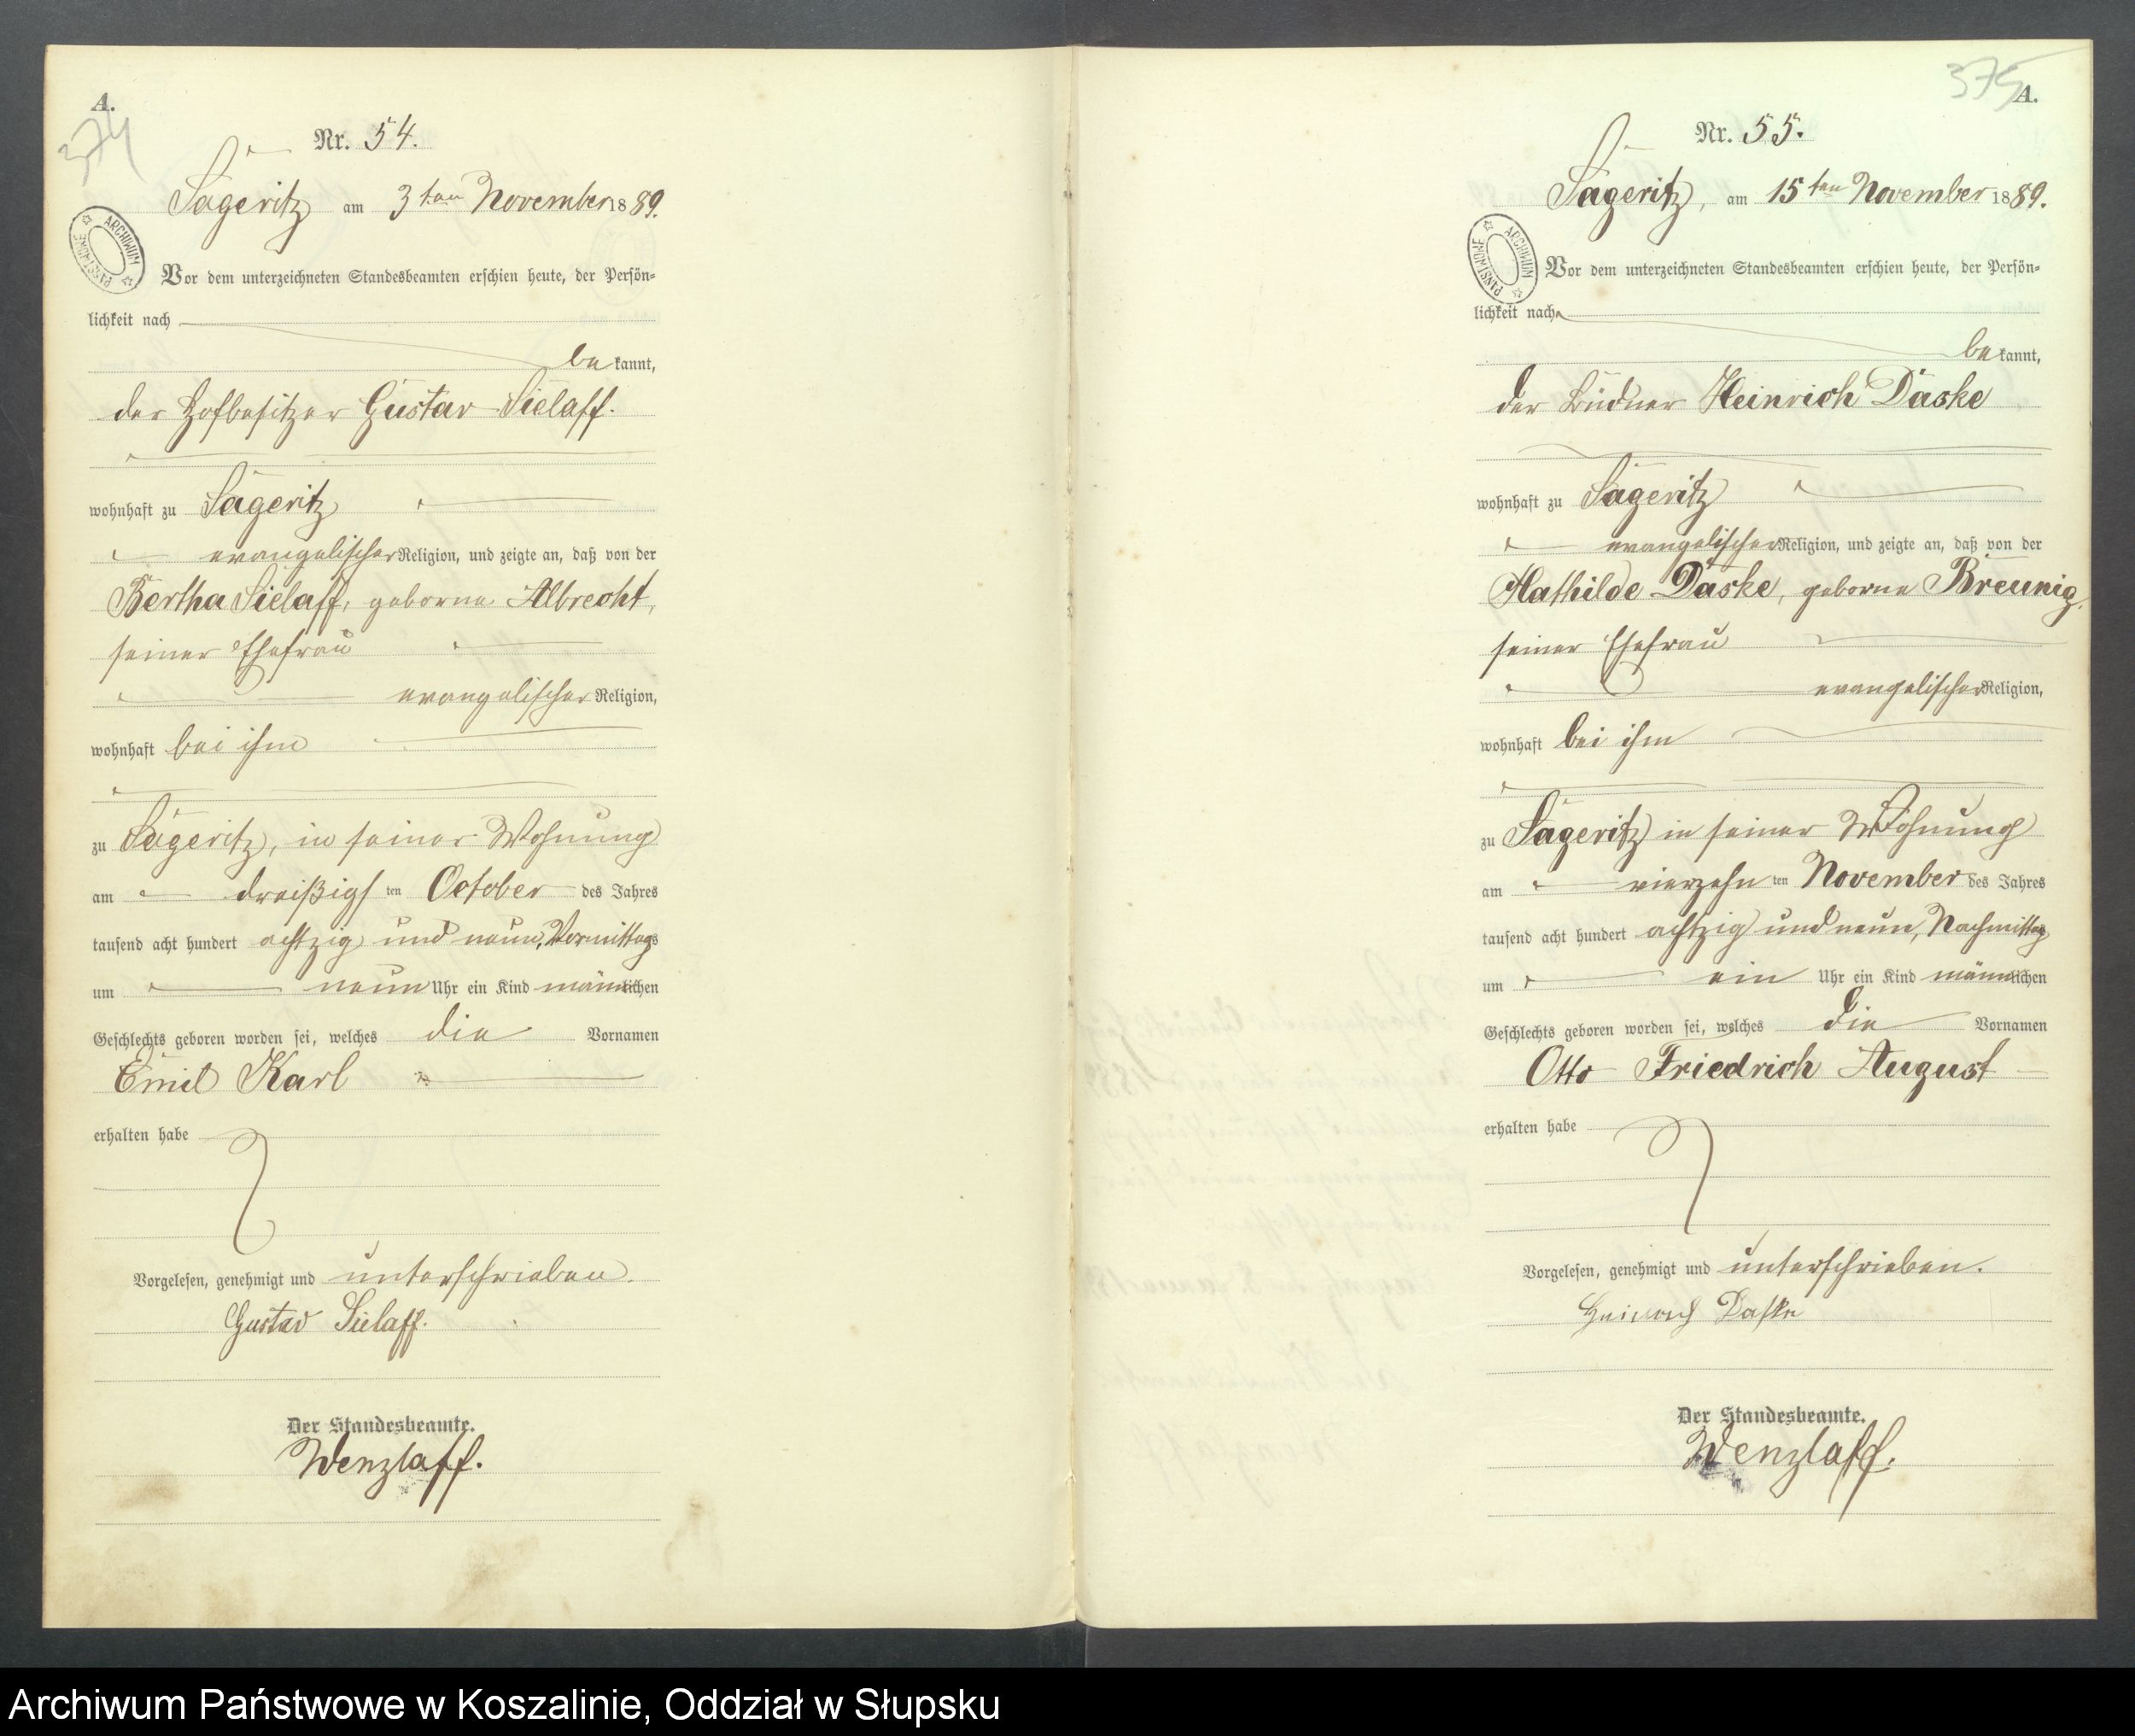 A.
374
Nr. 54.
Sägeritz am 3ten November 1889.
ARCHIWUM PAŃSTWOWE
Vor dem unterzeichneten Standesbeamten erschien heute, der Persön-
lichkeit nach
bekannt,
der Hofbesitzer Gustav Sielaff.
wohnhaft zu Sägeritz
evangelischer Religion, und zeigte an, daß von der
Bertha Sielaff, geborne Albrecht,
seiner Ehefrau
evangelischer Religion,
wohnhaft bei ihm
zu Sägeritz, in seiner Wohnung
am dreißigsten October des Jahres
tausend acht hundert achtzig und neun, Vormittags
um neun Uhr ein Kind männlichen
Geschlechts geboren worden sei, welches die Vornamen
Emil Karl
erhalten habe
Vorgelesen, genehmigt und unterschrieben.
Gustav Sielaff.
Der Standesbeamte.
Wenzlaff.
375
A.
Nr. 55.
Sägeritz, am 15ten November 1889.
ARCHIWUM PAŃSTWOWE
Vor dem unterzeichneten Standesbeamten erschien heute, der Persön-
lichkeit nach
bekannt,
der Büdner Heinrich Daske
wohnhaft zu Sägeritz
evangelischer Religion, und zeigte an, daß von der
Mathilde Daske, geborne Breunig,
seiner Ehefrau
evangelischer Religion,
wohnhaft bei ihm
zu Sägeritz in seiner Wohnung
am vierzehnten November des Jahres
tausend acht hundert achtzig und neun, Nachmittag
um ein Uhr ein Kind männlichen
Geschlechts geboren worden sei, welches die Vornamen
Otto Friedrich August
erhalten habe
Vorgelesen, genehmigt und unterschrieben.
Heinrich Daske
Der Standesbeamte.
Wenzlaff.
Archiwum Państwowe w Koszalinie, Oddział w Słupsku